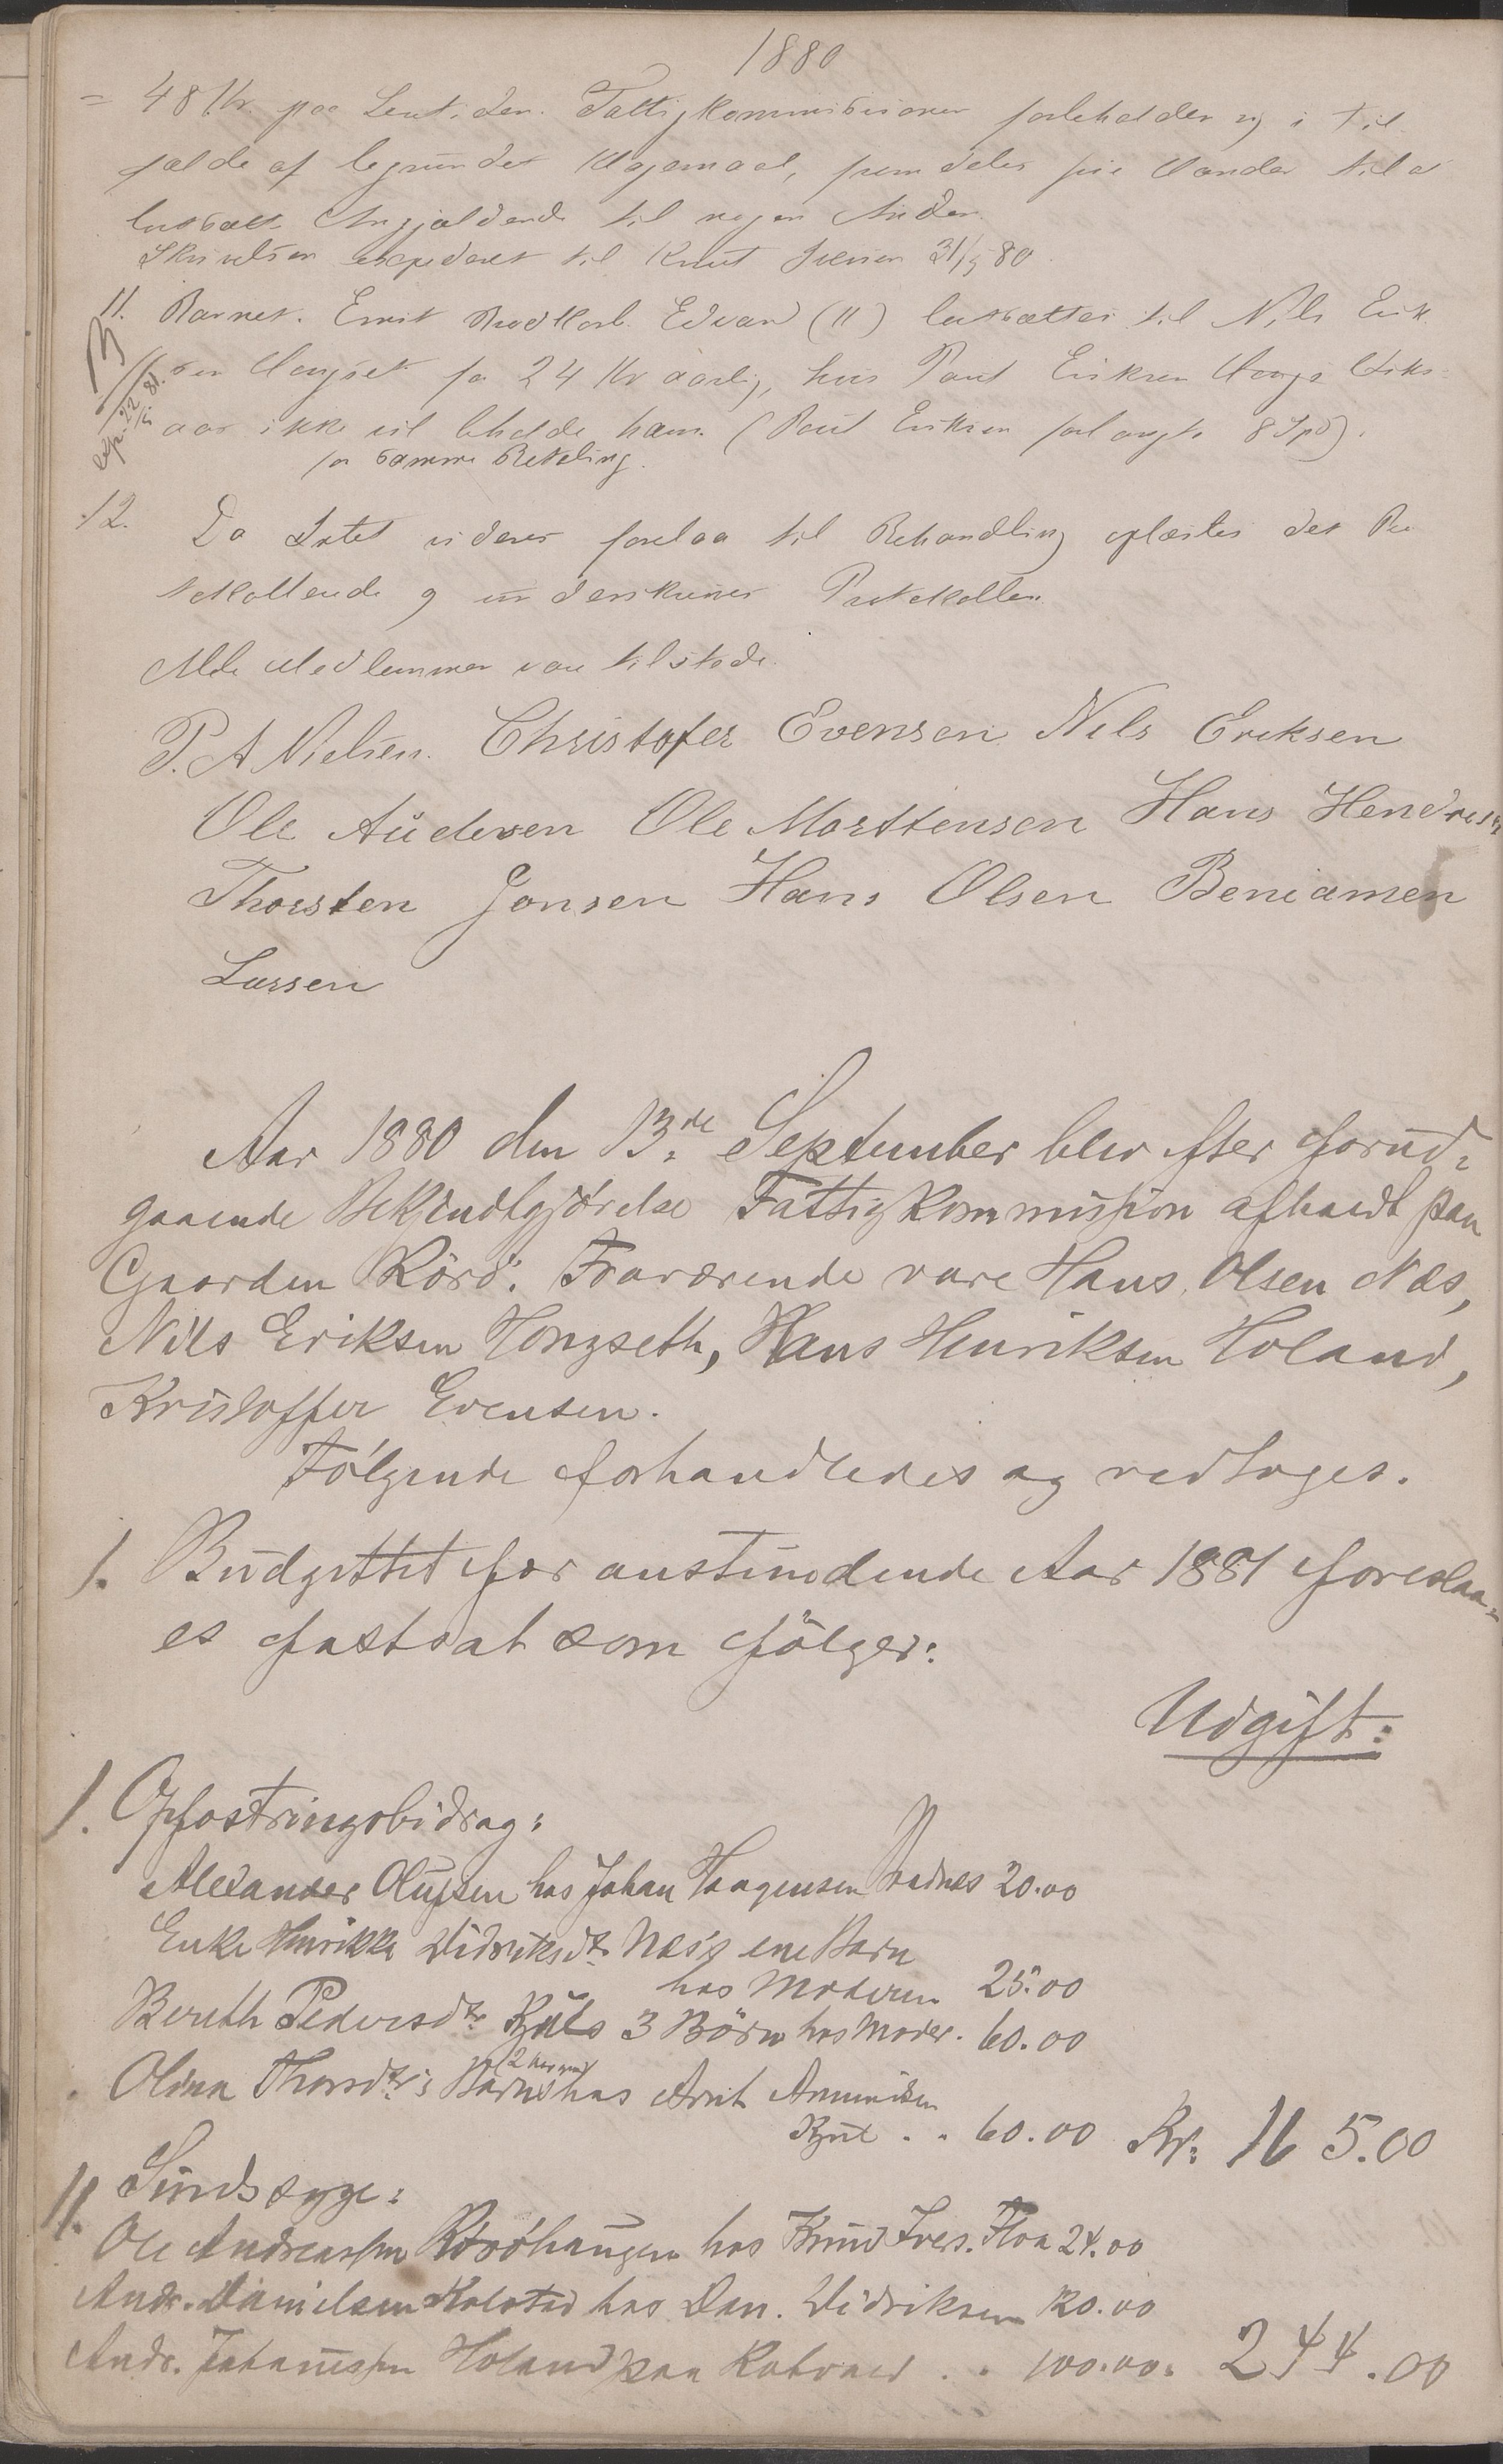 1880
= 48 Kr. paa Levetiden. Fattigkommissionen forbeholder sig i Til-
fælde af begrundet Klagemaal, fremdeles frie Hænder til at
bortsætte Angjældende til nogen Anden.
Skrivelsen expederet til Knut Iversen 31/5 80.
11. Barnet Ernst Edvard (11) bortsættes til Nils Erik-
sen Hongset for 24 Kr aarlig, hvis Paul Eriksen
aar ikke vil beholde ham (Paul Eriksen forlangte 8 Spd).
for samme Betaling.
expd. 22/ 81.
12. Da Intet videre forelaa til Behandling oplæstes det Pro
tokollerede og underskrives Protokollen.
Alle Medlemmer vare tilstede.
P. A Nielsen. Christofer Evensen Nils Eriksen
Ole Audensen Ole Morttensen Hans Hendriksen
Thorsten Jonsen Hans Olsen Beniamen
Larsen
Aar 1880 den 13de September blev efter forud-
gaaende Bekjendtgjørelse Fattigkommission afholdt paa
Gaarden Rörö. Fraværende vare Hans Olsen Næs,
Nils Eriksen Hongseth, Hans Henriksen Holand,
Kristoffer Evensen.
Fölgende forhandledes og vedtoges.
1. Budgettet for anstundende Aar 1881 foreslaa-
es fastsat som fölger:
Udgift:
1. Opfostringsbidrag:
Alexander Olufsen hos Johan Haagensen 20.00
Enke Henrikke Didriksdtr Næs's ene Barn
hos Moderen 25.00
Bereth Pedersdtr 3 Börn hos Moder. 60.00
Olina Thorsdtr's Barn hos Arnt Amundsen
. . 60.00 Kr. 165.00
11. Sindssyge:
Ole Andreassen Röröhaugen hos Knud Ivers. Floa 24.00
Andr. Danielsen Kolstad hos Dan. Didriksen 120.00
Andr. Johanssen Holand paa Rotvold . . 100.00. 244.00